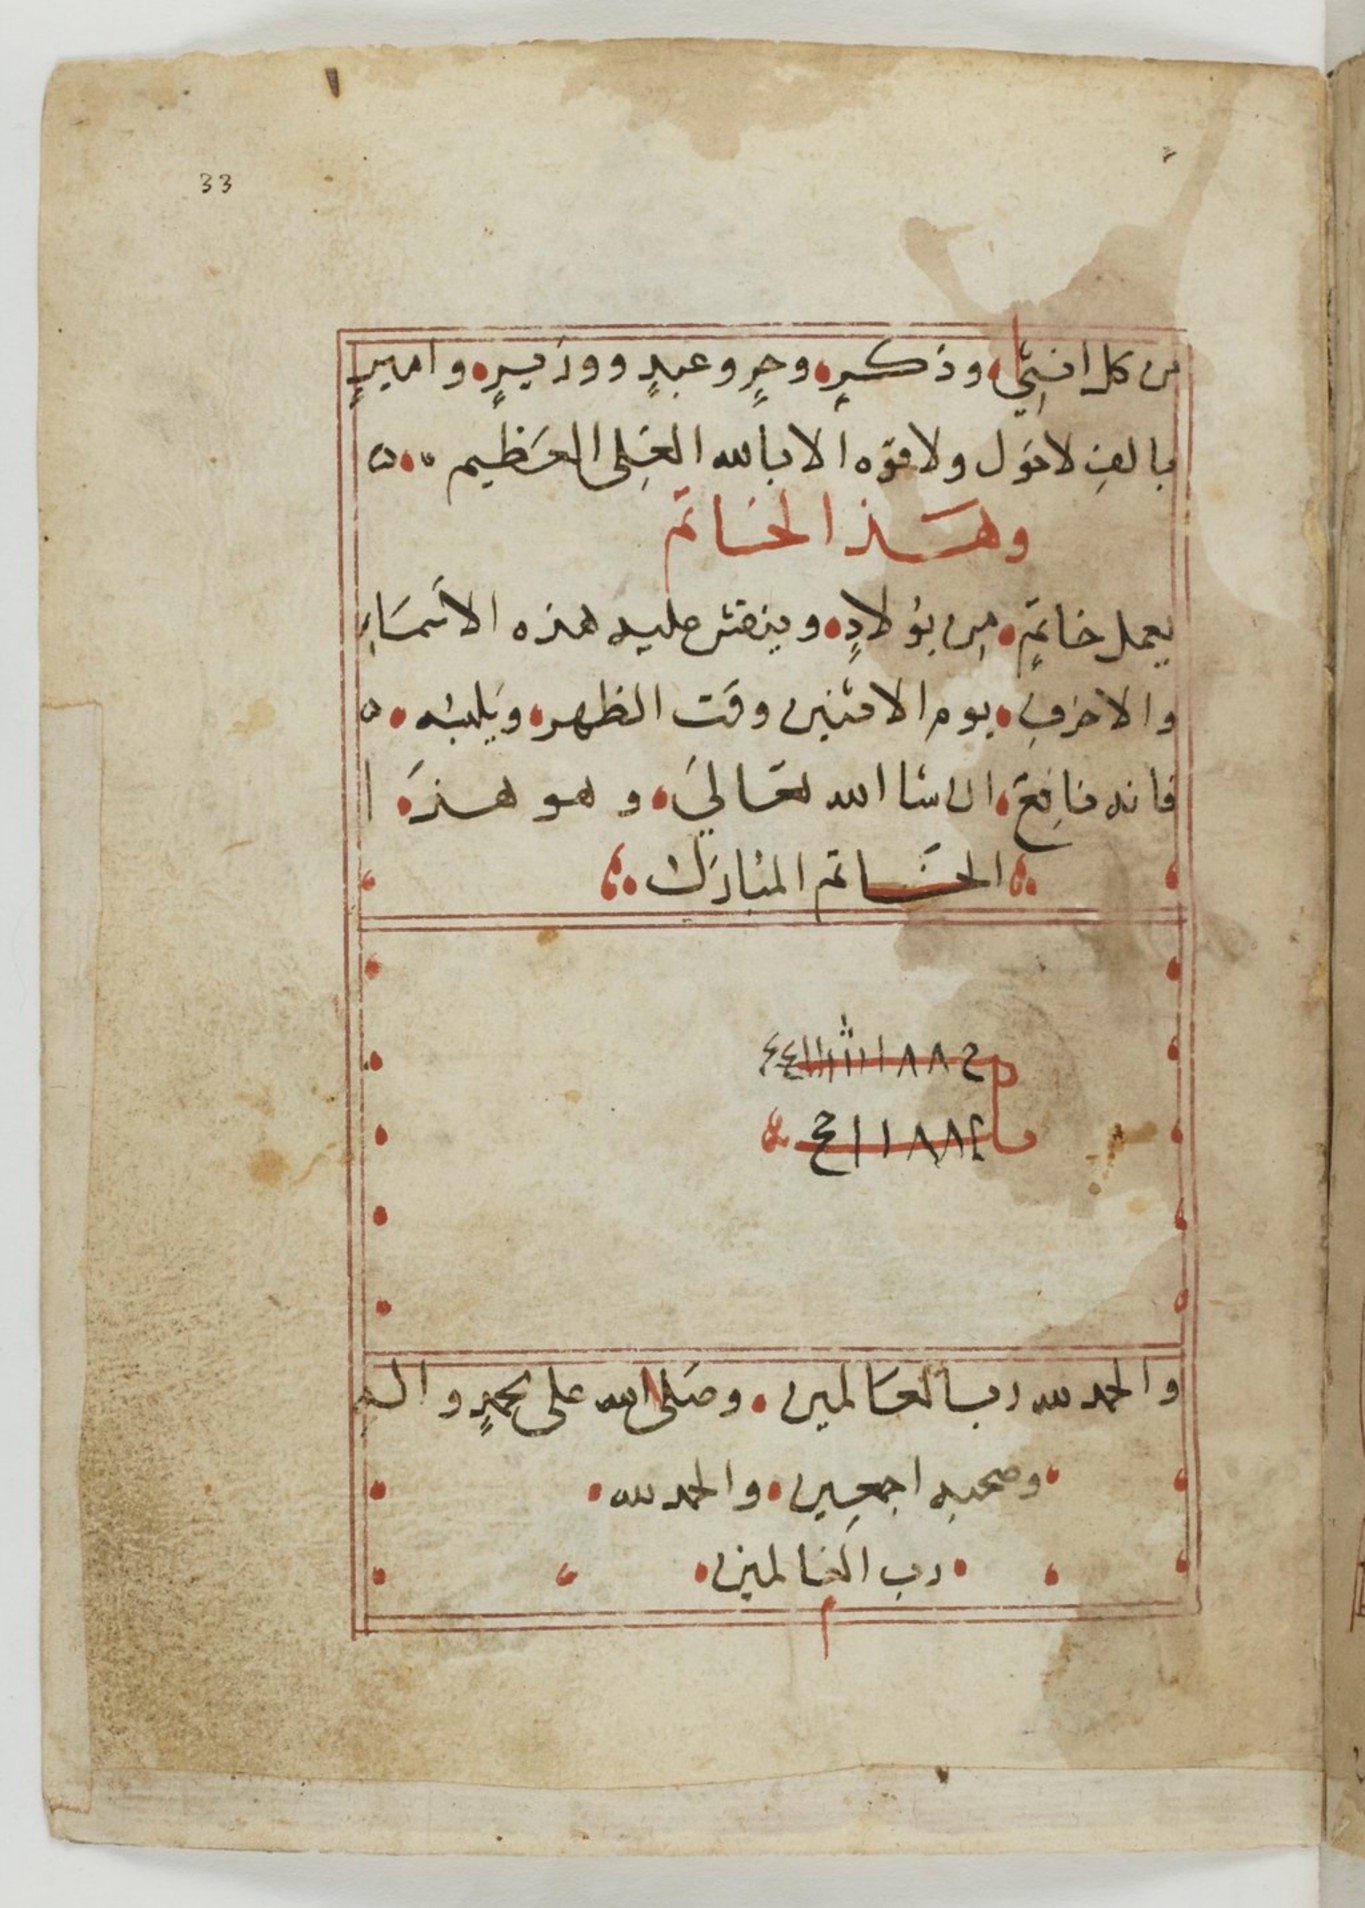 33
من كل انثي وذكرٍ وحرٍ وعبدٍ ووزيرٍ واميرٍ
بالف لاحول ولا قوه الا بالله العلي العظيم
وهذا الخاتم
يعمل خاتمٍ من بولادٍ وينقش عليه هذه الاسماء
والاحرف يوم الاثنين وقت الظهر ويلبسه
فانه نافع ان شا الله تعالي وهو هذا
الخاتم المبارك
والحمد لله رب العالمين وصلى الله على محمدٍ واله
وصحبه اجمعين والحمد لله
رب العالمين